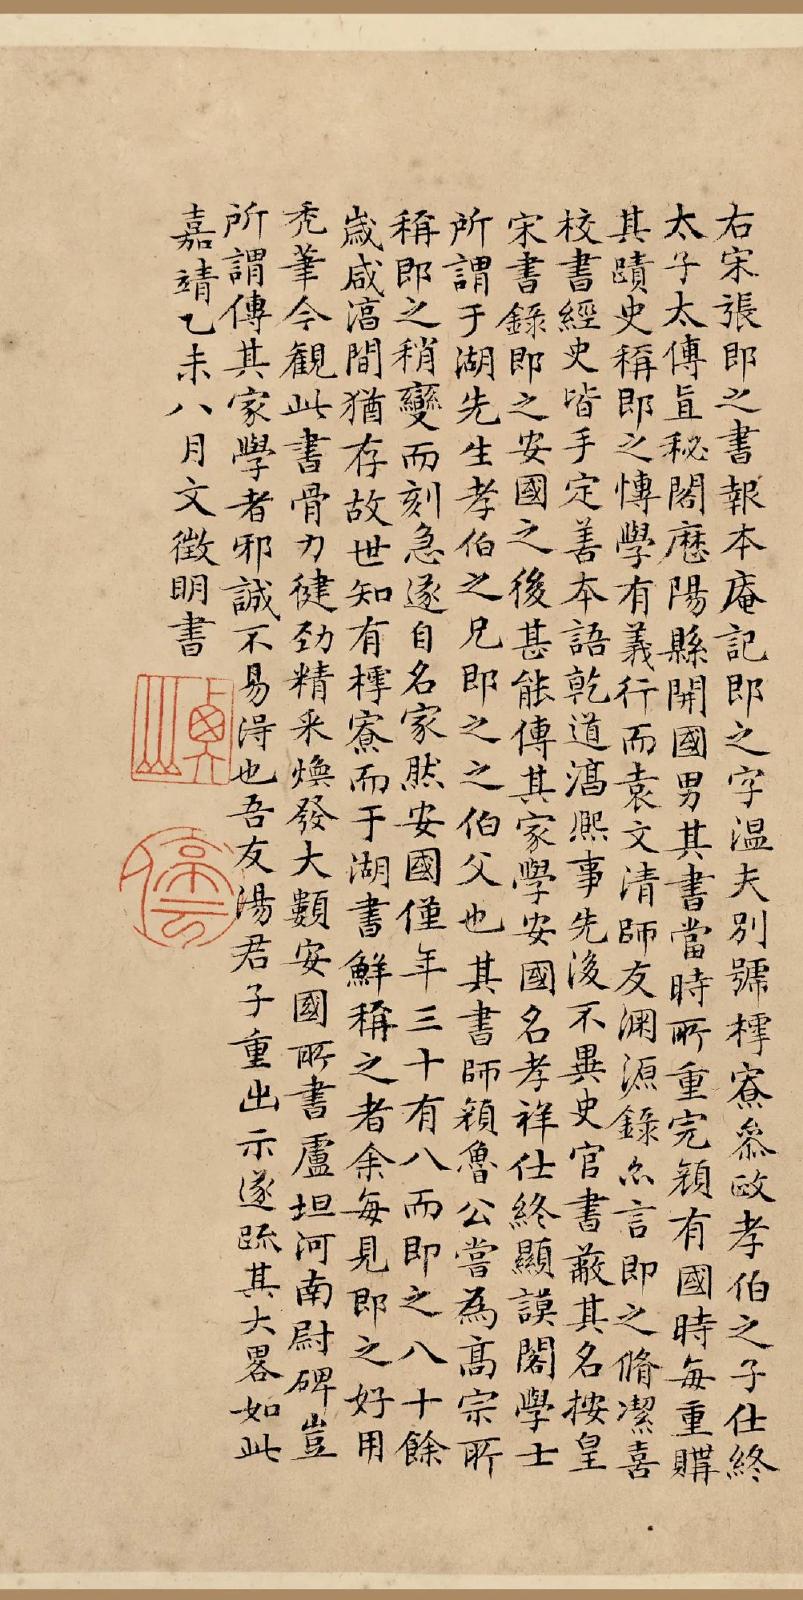 右宋張即之書報本庵記即之字温夫別號樗寮叅政孝伯之子仕終
太子太傅直秘閣歷陽縣開國男其書當時所重完顏有國時每重購
其蹟史稱即之博學有義行而袁文清師友渊源錄亦言即之脩潔喜
校書經史皆手定善本語乾道淳熙事先後不異史官書蔽其名按皇
宋書錄即之安國之後甚能傳其家學安國名孝祥仕終顯謨閣學士
所謂于湖先生孝伯之兄即之之伯父也其書師顏魯公嘗為高宗所
稱即之稍變而刻急遂自名家然安國僅年三十有八而即之八十餘
歲咸淳間猶存故世知有樗寮而于湖書鮮稱之者余每見即之好用
禿筆今觀此書骨力健勁精采煥發大類安國所書盧坦河南尉碑豈
所謂傳其家學者邪誠不易得也吾友湯君子重出示遂疏其大畧如此
嘉靖乙未八月文徵明書